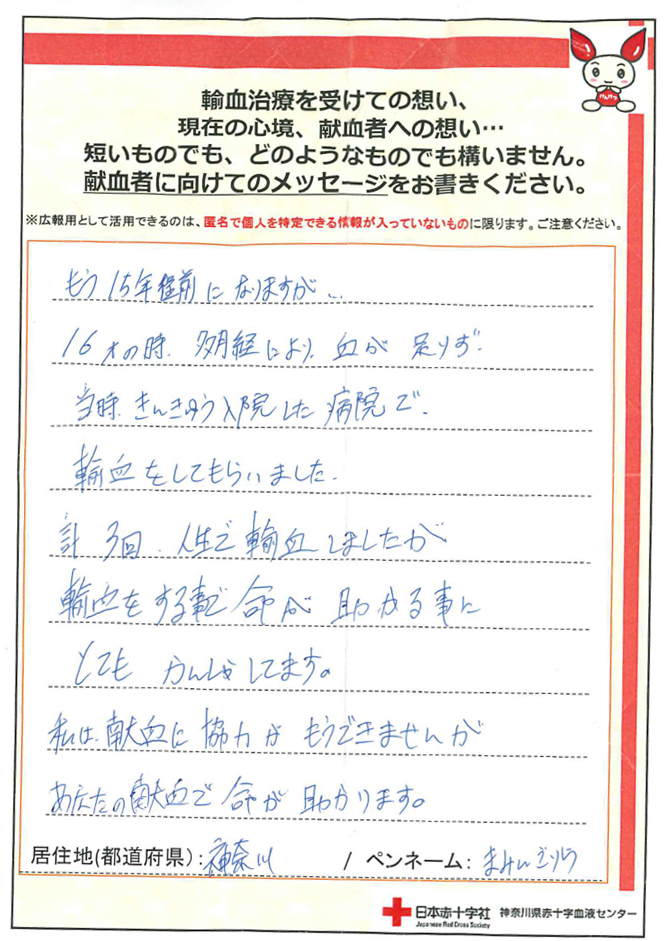 輸血治療を受けての想い、
現在の心境、献血者への想い…
短いものでも、どのようなものでも構いません。
献血者に向けてのメッセージをお書きください。
※広報用として活用できるのは、匿名で個人を特定できる情報が入っていないものに限ります。ご注意ください。
けんけつ
もう15年程前になりますが…
16才の時、多月経により、血が足りず、
当時、きんきゅう入院した病院で、
輸血をしてもらいました。
計3回、人生で輸血しましたが
輸血をする事で命が助かる事に
とてもかんしゃしてます。
私は、献血に協力がもうできませんが
あなたの献血で命が助かります。
居住地(都道府県):神奈川 / ペンネーム:
日本赤十字社 神奈川県赤十字血液センター
Japanese Red Cross Society